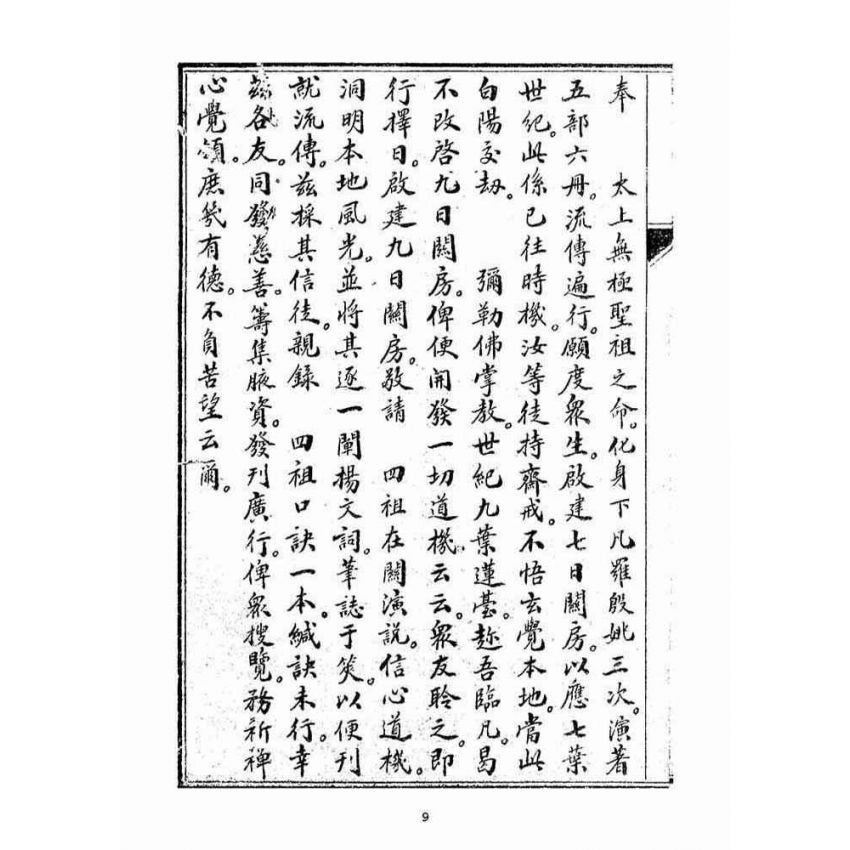 奉　太上無極聖祖之命。化身下凡羅殷姚三次。演著
五部六冊。流傳遍行。願度眾生。啟建七日關房。以應七葉
世紀。此係已往時機。汝等徒持齋戒。不悟玄覺本地。當此
白陽交劫。　彌勒佛掌教。世紀九葉蓮臺。趂吾臨凡。曷
不改啓九日關房。俾便開發一切道機云云。眾友聆之。即
行擇日。啟建九日關房。敬請　四祖在關演說。信心道機。
洞明本地風光。並將其逐一闡揚文詞。筆誌于笑。以便刊
就流傳。茲採其信徒。親錄　四祖口訣一本。緘訣未行。幸
茲各友。同發慈善。籌集腋資。發刊廣行。俾眾搜覽。務祈禅
心覺領。庶幾有德。不負苦望云爾。
9